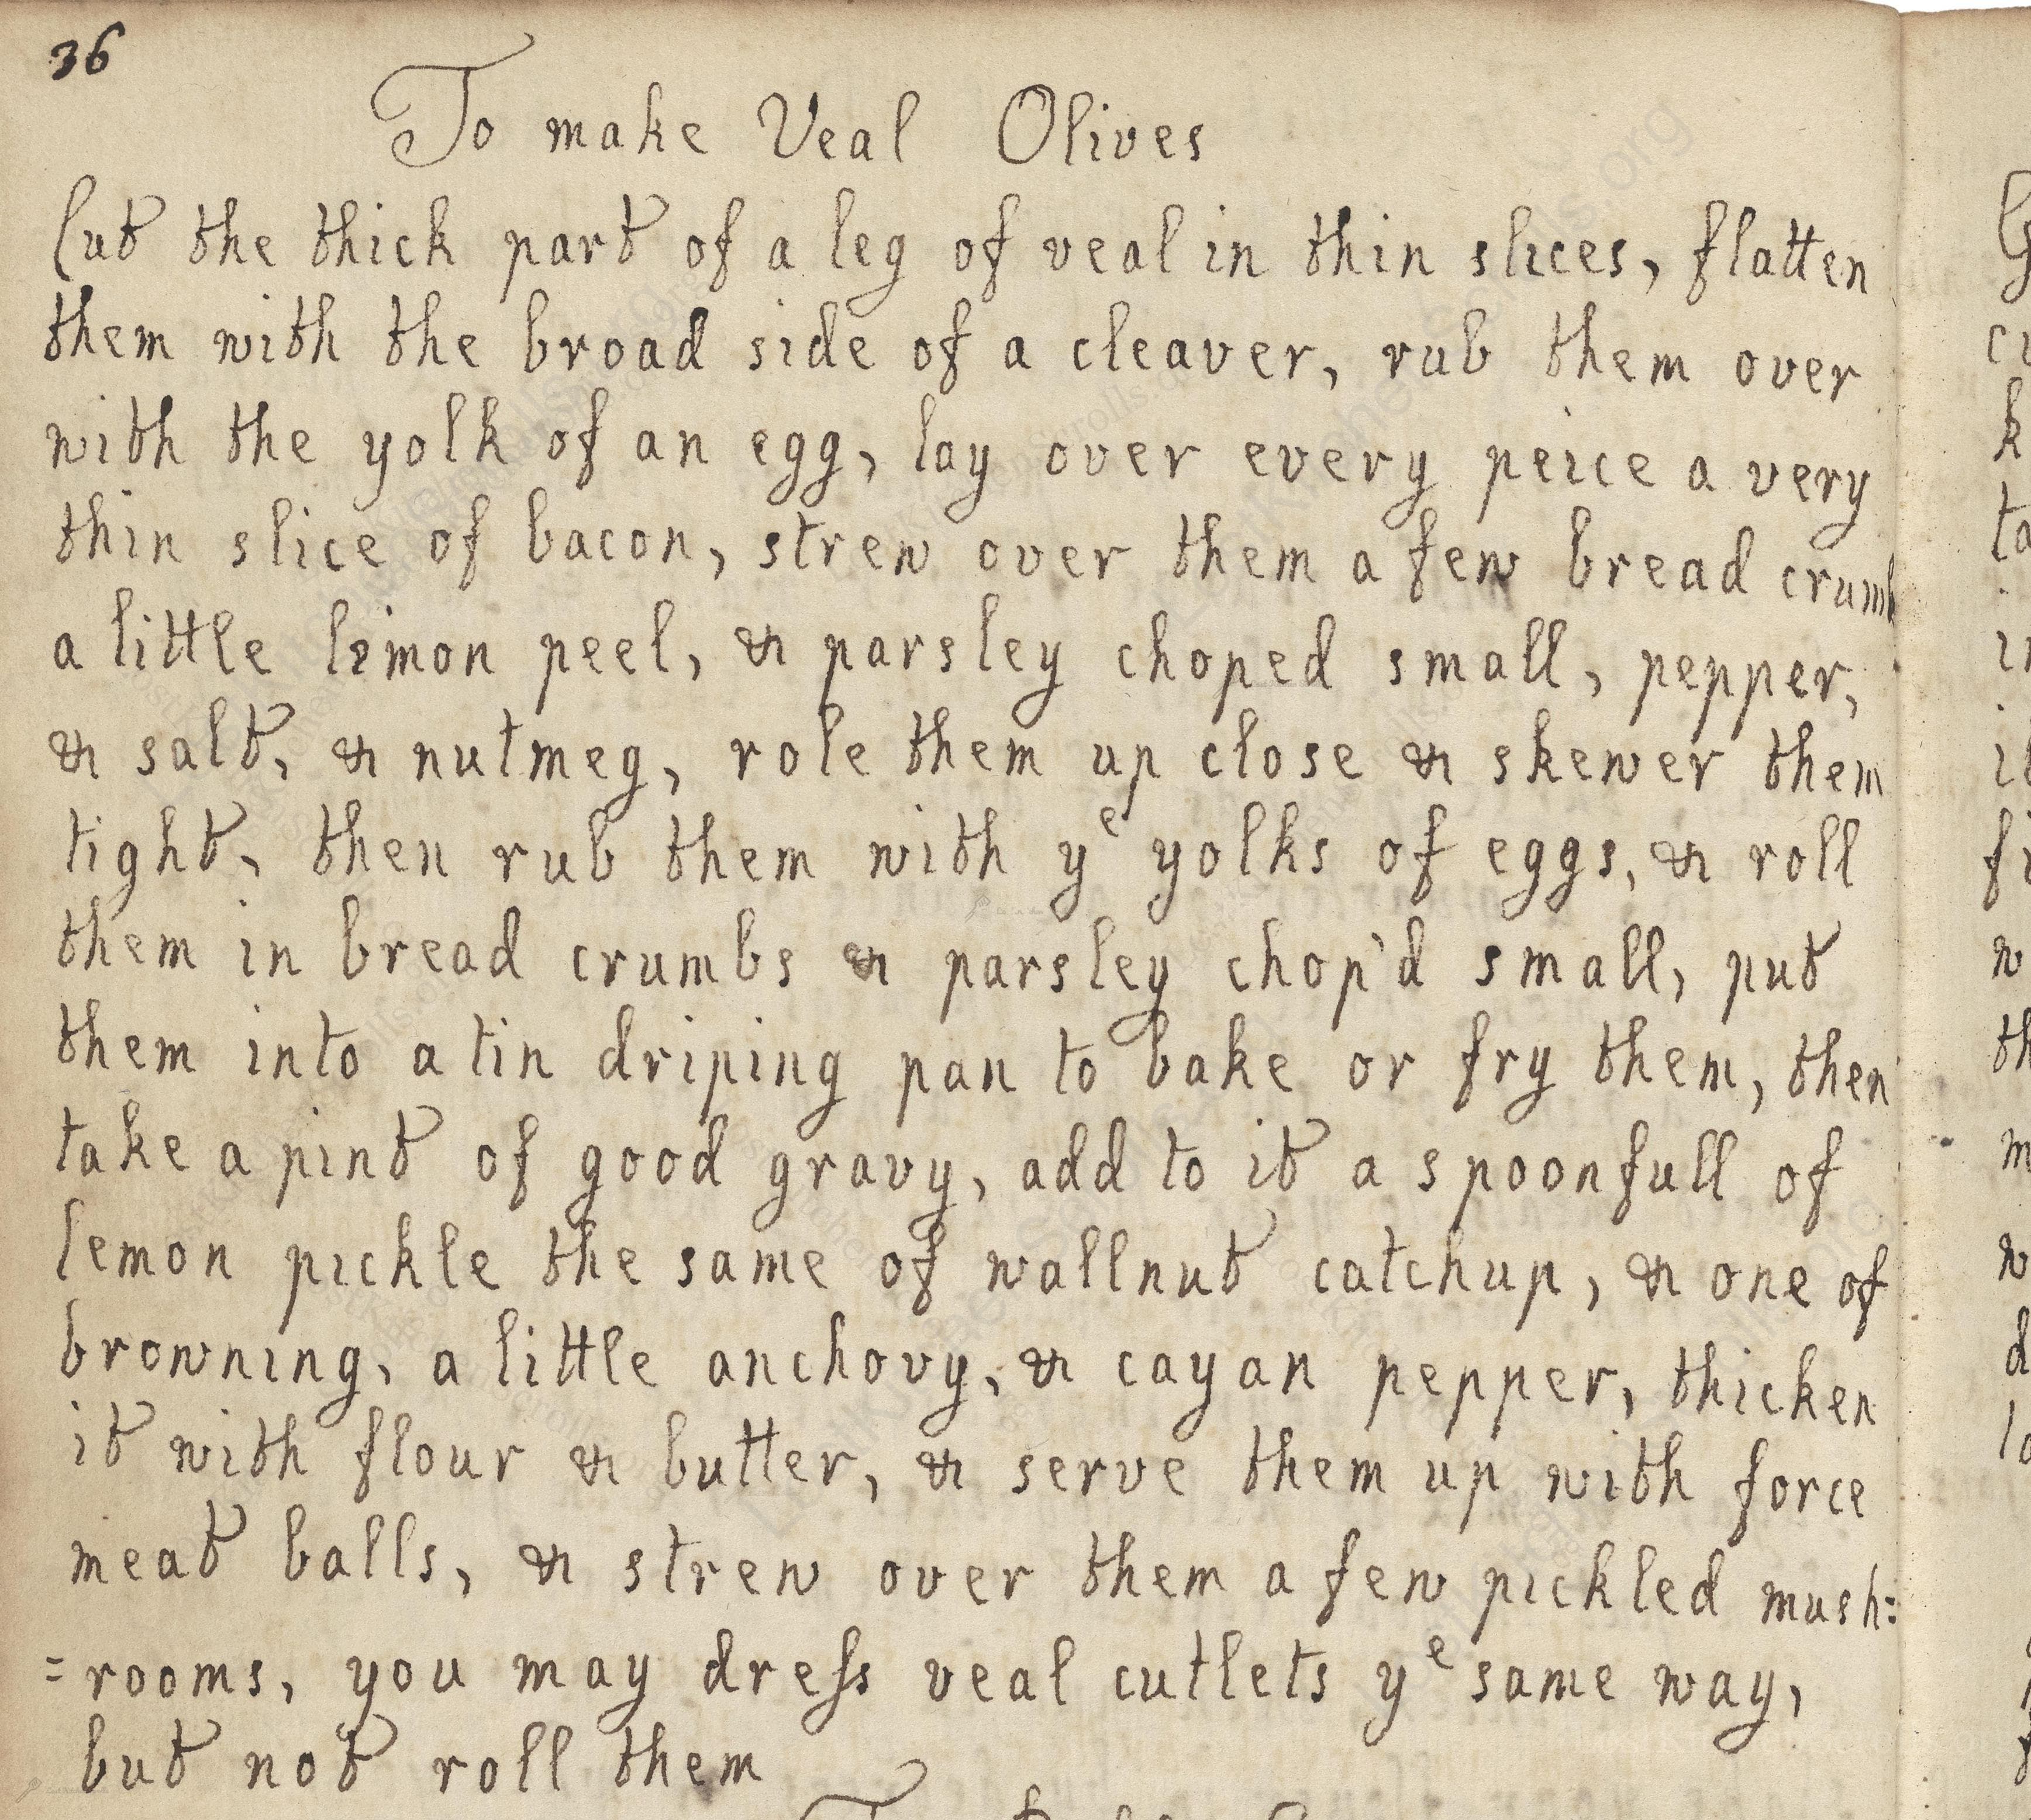 36
To make Veal Olives
Cut the thick part of a leg of veal in thin slices, flatten
them with the broad side of a cleaver, rub them over
with the yolk of an egg, lay over every peice a very
thin slice of bacon, strew over them a few bread crumb
a little lemon peel, & parsley choped small, pepper,
& salt, & nutmeg, role them up close & skewer them
tight, then rub them with yᵉ yolks of eggs, & roll
them in bread crumbs & parsley chop'd small, put
them into a tin driping pan to bake or fry them, then
take a pint of good gravy, add to it a spoonfull of
lemon pickle the same of wallnut catchup, & one of
browning, a little anchovy, & cayan pepper, thicken
it with flour & butter, & serve them up with force
meat balls, & strew over them a few pickled mush=
=rooms, you may dreſs veal cutlets yᵉ same way,
but not roll them